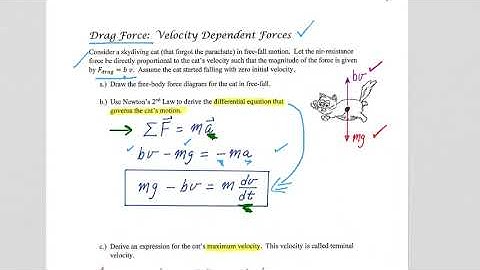 Drag Force: Velocity Dependent Forces
Consider a skydiving cat (that forgot the parachute) in free-fall motion. Let the air-resistance
force be directly proportional to the cat's velocity such that the magnitude of the force is given
by F_drag = b v. Assume the cat started falling with zero initial velocity.
a.) Draw the free-body force diagram for the cat in free-fall.
bv
mg
b.) Use Newton's 2nd Law to derive the differential equation that
governs the cat's motion.
ΣF⃗ = ma⃗
bv - mg = -ma
mg - bv = m dv/dt
c.) Derive an expression for the cat's maximum velocity. This velocity is called terminal
velocity.